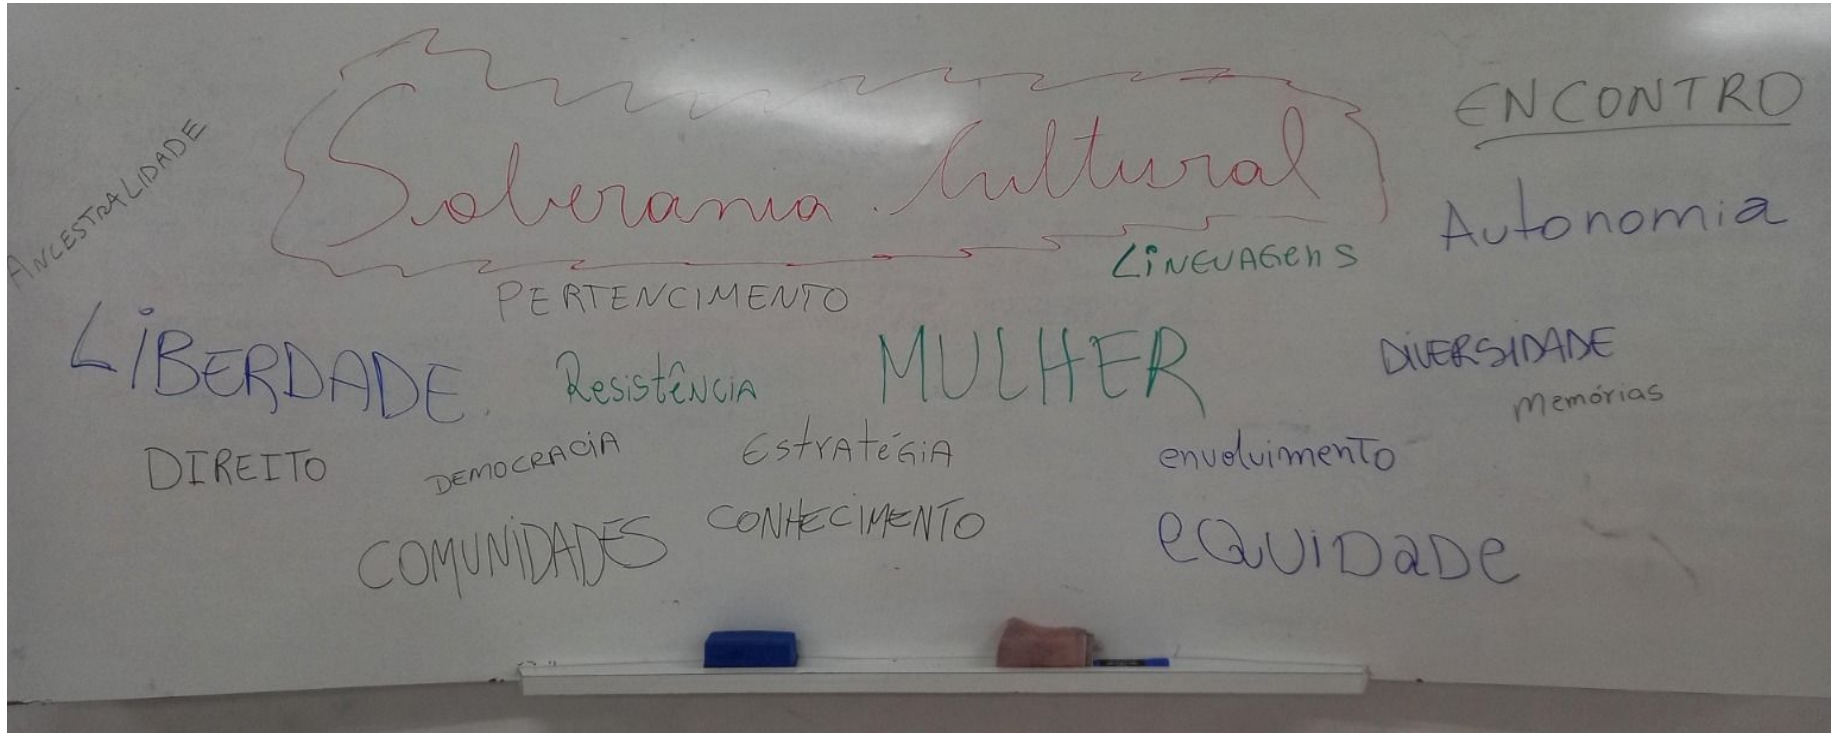 ENCONTRO
Soberania Cultural
ANCESTRALIDADE
Autonomia
LINGUAGENS
PERTENCIMENTO
LIBERDADE
Resistência
MULHER
DIVERSIDADE
memórias
DIREITO
DEMOCRACIA
EstrAtéGiA
envolvimento
COMUNIDADES
CONHECIMENTO
eQUiDaDe